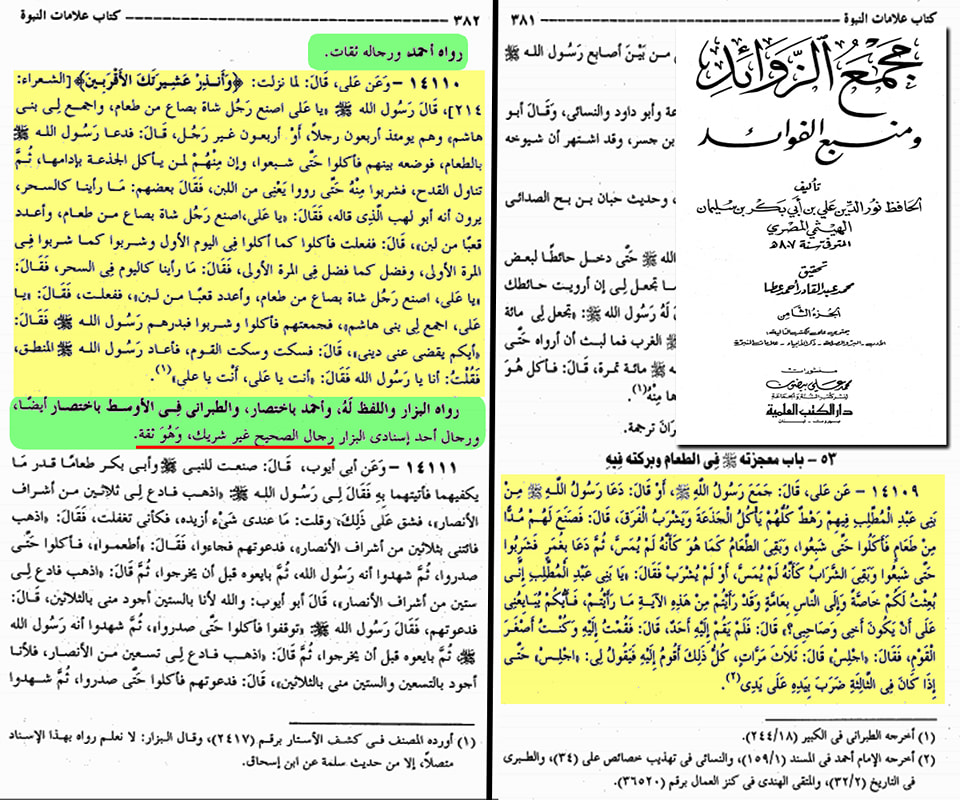 كتاب علامات النبوة ٣٨١
من بَيْنَ أصابع رَسُول اللـه ﷺ
ـة وأبو داود والنسائى، وَقَالَ أبو
بن جسر، وقد اشتهر أن شيوخه
، وحديث حبان بن بح الصدائى
الله ﷺ حَتَّى دخل حائطًا لبعض
ـا تجعل لِى إن أرويت حائطك
لَهُ رَسُول الله ﷺ: «تجعل لِى مائة
الغرب فما لبث أن أرواه حَتَّى
ﷺ مائة تمرة، قَالَ: فـأكل هُـوَ
ـا مِنْهُ(١).
ـرَانَ ترجمة.
مجمع الزوائد
ومنبع الفوائد
تأليف
الحافظ نور الدين علي بن أبي بكر بن سليمان
الهيثمي المصري
المتوفى سنة ٨٠٧هـ
تحقيق
محمد عبد القادر أحمد عطا
الجزء الثامن
منشورات
محمد علي بيضون
دار الكتب العلمية
٥٣ – باب معجزته ﷺ فِى الطعام وبركته فِيهِ
١٤١٠٩ – عَن عَلى، قَالَ: جَمَعَ رَسُولُ اللَّهِ ﷺ، أَوْ قَالَ: دَعَا رَسُولُ اللَّهِ ﷺ مِنْ
بَنِى عَبْدِ الْمُطَّلِبِ فِيهِمْ رَهْطٌ كُلُّهُمْ يَأْكُلُ الْجَذَعَةَ وَيَشْرَبُ الْفَرَقَ، قَالَ: فَصَنَعَ لَهُـمْ مُـدًّا
مِنْ طَعَامٍ فَأَكَلُوا حَتَّى شَبِعُوا، وَبَقِىَ الطَّعَامُ كَمَا هُوَ كَأَنَّهُ لَمْ يُمَسَّ، ثُمَّ دَعَا بِغُمَرٍ فَشَرِبُوا
حَتَّى شَبِعُوا وَبَقِىَ الشَّرَابُ كَأَنَّهُ لَمْ يُمَسَّ، أَوْ لَمْ يُشْرَبْ فَقَالَ: «يَا بَنِى عَبْدِ الْمُطَّلِبِ إِنِّى
بُعِثْتُ لَكُمْ خَاصَّةً وَإِلَى النَّاسِ بِعَامَّةٍ وَقَدْ رَأَيْتُمْ مِنْ هَذِهِ الآيَـةِ مَا رَأَيْتُمْ، فَـأَيُّكُمْ يُبَايِعُنِى
عَلَى أَنْ يَكُونَ أَخِى وَصَاحِبِى؟» قَالَ: فَلَمْ يَقُمْ إِلَيْهِ أَحَدٌ، قَالَ: فَقُمْتُ إِلَيْهِ وَكُنْتُ أَصْغَرَ
الْقَوْمِ، فَقَالَ: «اجْلِسْ» قَالَ: ثَلاَثَ مَرَّاتٍ، كُلُّ ذَلِكَ أَقُومُ إِلَيْهِ فَيَقُولُ لِى: «اجْلِسْ» حَتَّى
إِذَا كَانَ فِى الثَّالِثَةِ ضَرَبَ بِيَدِهِ عَلَى يَدِى(٢).
(١) أخرجه الطبرانى فى الكبير (٢٤٤/١٨).
(٢) أخرجه الإمام أحمد فى المسند (١٥٩/١)، والنسائى فى تهذيب خصائص على (٣٤)، والطبرى
فى التاريخ (٣٢/٢)، والمتقى الهندى فى كنز العمال برقم (٣٦٥٢٠).
٣٨٢ كتاب علامات النبوة
رواه أحمد ورجاله ثقات.
١٤١١٠ – وَعَن على، قَالَ: لما نزلت: ﴿وَأَنـذِرْ عَشِيرَتَكَ الأَقْرَبِـينَ﴾ [الشعراء:
٢١٤]، قَالَ رَسُول الله ﷺ: «يا على اصنع رَجُل شاة بصاع من طعام، واجمـع لِـى بنى
هاشم»، وهم يومئذ أربعون رجلاً، أَوْ أربعون غير رَجُل، قَـالَ: فدعـا رَسُـول اللـه ﷺ
بالطعام، فوضعه بينهم فأكلوا حَتَّى شـبعوا، وإن مِنْهُـمْ لمن يـأكل الجذعـة بإدامها، ثُـمَّ
تناول القدح، فشربوا مِنْهُ حَتَّى رووا يَعْنِى من اللبن، فَقَالَ بعضهم: مَـا رأينـا كالسحر،
يرون أنه أبو لهب الَّذِى قاله، فقَالَ: «يا عَلى،اصنع رَجُل شاة بصاع مـن طعـام، وأعـدد
قعبًا من لبن»، قَالَ: ففعلت فأكلوا كما أكلوا فِى اليوم الأول وشـربوا كمـا شـربوا فِـى
المرة الأولى، وفضل كما فضل فِى المرة الأولى، فَقَالَ: مَا رأينا كاليوم فِى السحر، فَقَالَ:
«يا عَلى، اصنع رَجُل شاة بصاع من طعام، وأعدد قعبًا مـن لـبن»، ففعلـت، فَقَالَ: «يـا
عَلى، اجمع لِى بنى هاشم»، فجمعتهم فأكلوا وشـربوا فبدرهم رَسُول اللـه ﷺ فَقَالَ:
«أيكم يقضى عنى دينى»، قَـالَ: فسكت وسكت القوم، فأعاد رَسُول اللـه ﷺ المنطق،
فَقُلْتُ: أنا يا رسول الله فَقَالَ: «أنت يا عَلى، أَنْت يا على»(١).
رواه البزار واللفظ لَهُ، وأحمد باختصار، والطبرانى فِـى الأوسط باختصار أيضًا،
ورجال أحد إسنادى البزار رجال الصحيح غير شريك، وَهُوَ ثقة.
١٤١١١ – وَعَن أبى أيوب، قَالَ: صنعت للنبى ﷺ وأبى بكر طعامًا قدر مَا
يكفيهما فأتيتهما بِهِ فَقَالَ لِـى رَسُـول اللـه ﷺ: «اذهـب فـادع لِـى ثلاثـين من أشراف
الأنصار»، فشق عَلَى ذَلِكَ، وقلت: مَا عندى شَىْء أزيده، فكأنى تغفلت، فَقَالَ: «اذهب
فائتنى بثلاثين من أشراف الأنصار»، فدعوتهم فجاءوا، فَقَالَ: «أطعمـوا»، فـأكلوا حَتَّـى
صدروا، ثُمَّ شهدوا أنه رَسُول الله، ثُمَّ بايعوه قبل أن يخرجوا، ثُمَّ قَالَ: «اذهب فادع لِـى
ستين من أشراف الأنصار»، قَالَ أبو أيوب: والله لأنا بالستين أجود منى بالثلاثين، قَـالَ:
فدعوتهم، فَقَالَ رَسُول الله ﷺ: «توقفوا فأكلوا حَتَّى صدروا»، ثُمَّ شهدوا أنه رسُول الله
ﷺ، ثُمَّ بايعوه قبل أن يخرجوا، ثُمَّ قَالَ: «اذهب فـادع لِـى تسـعين مـن الأنصـار، فلأنـا
أجود بالتسعين والستين منى بالثلاثين»، قَالَ: فدعوتهم فأكلوا حَتَّى صدروا، ثُمَّ شهـدوا
(١) أورده المصنف فـى كشـف الأستار برقم (٢٤١٧)، وقـال البزار: لا نعلم رواه بهـذا الإسـناد
متصلاً، إلا من حديث سلمة عن ابن إسحاق.